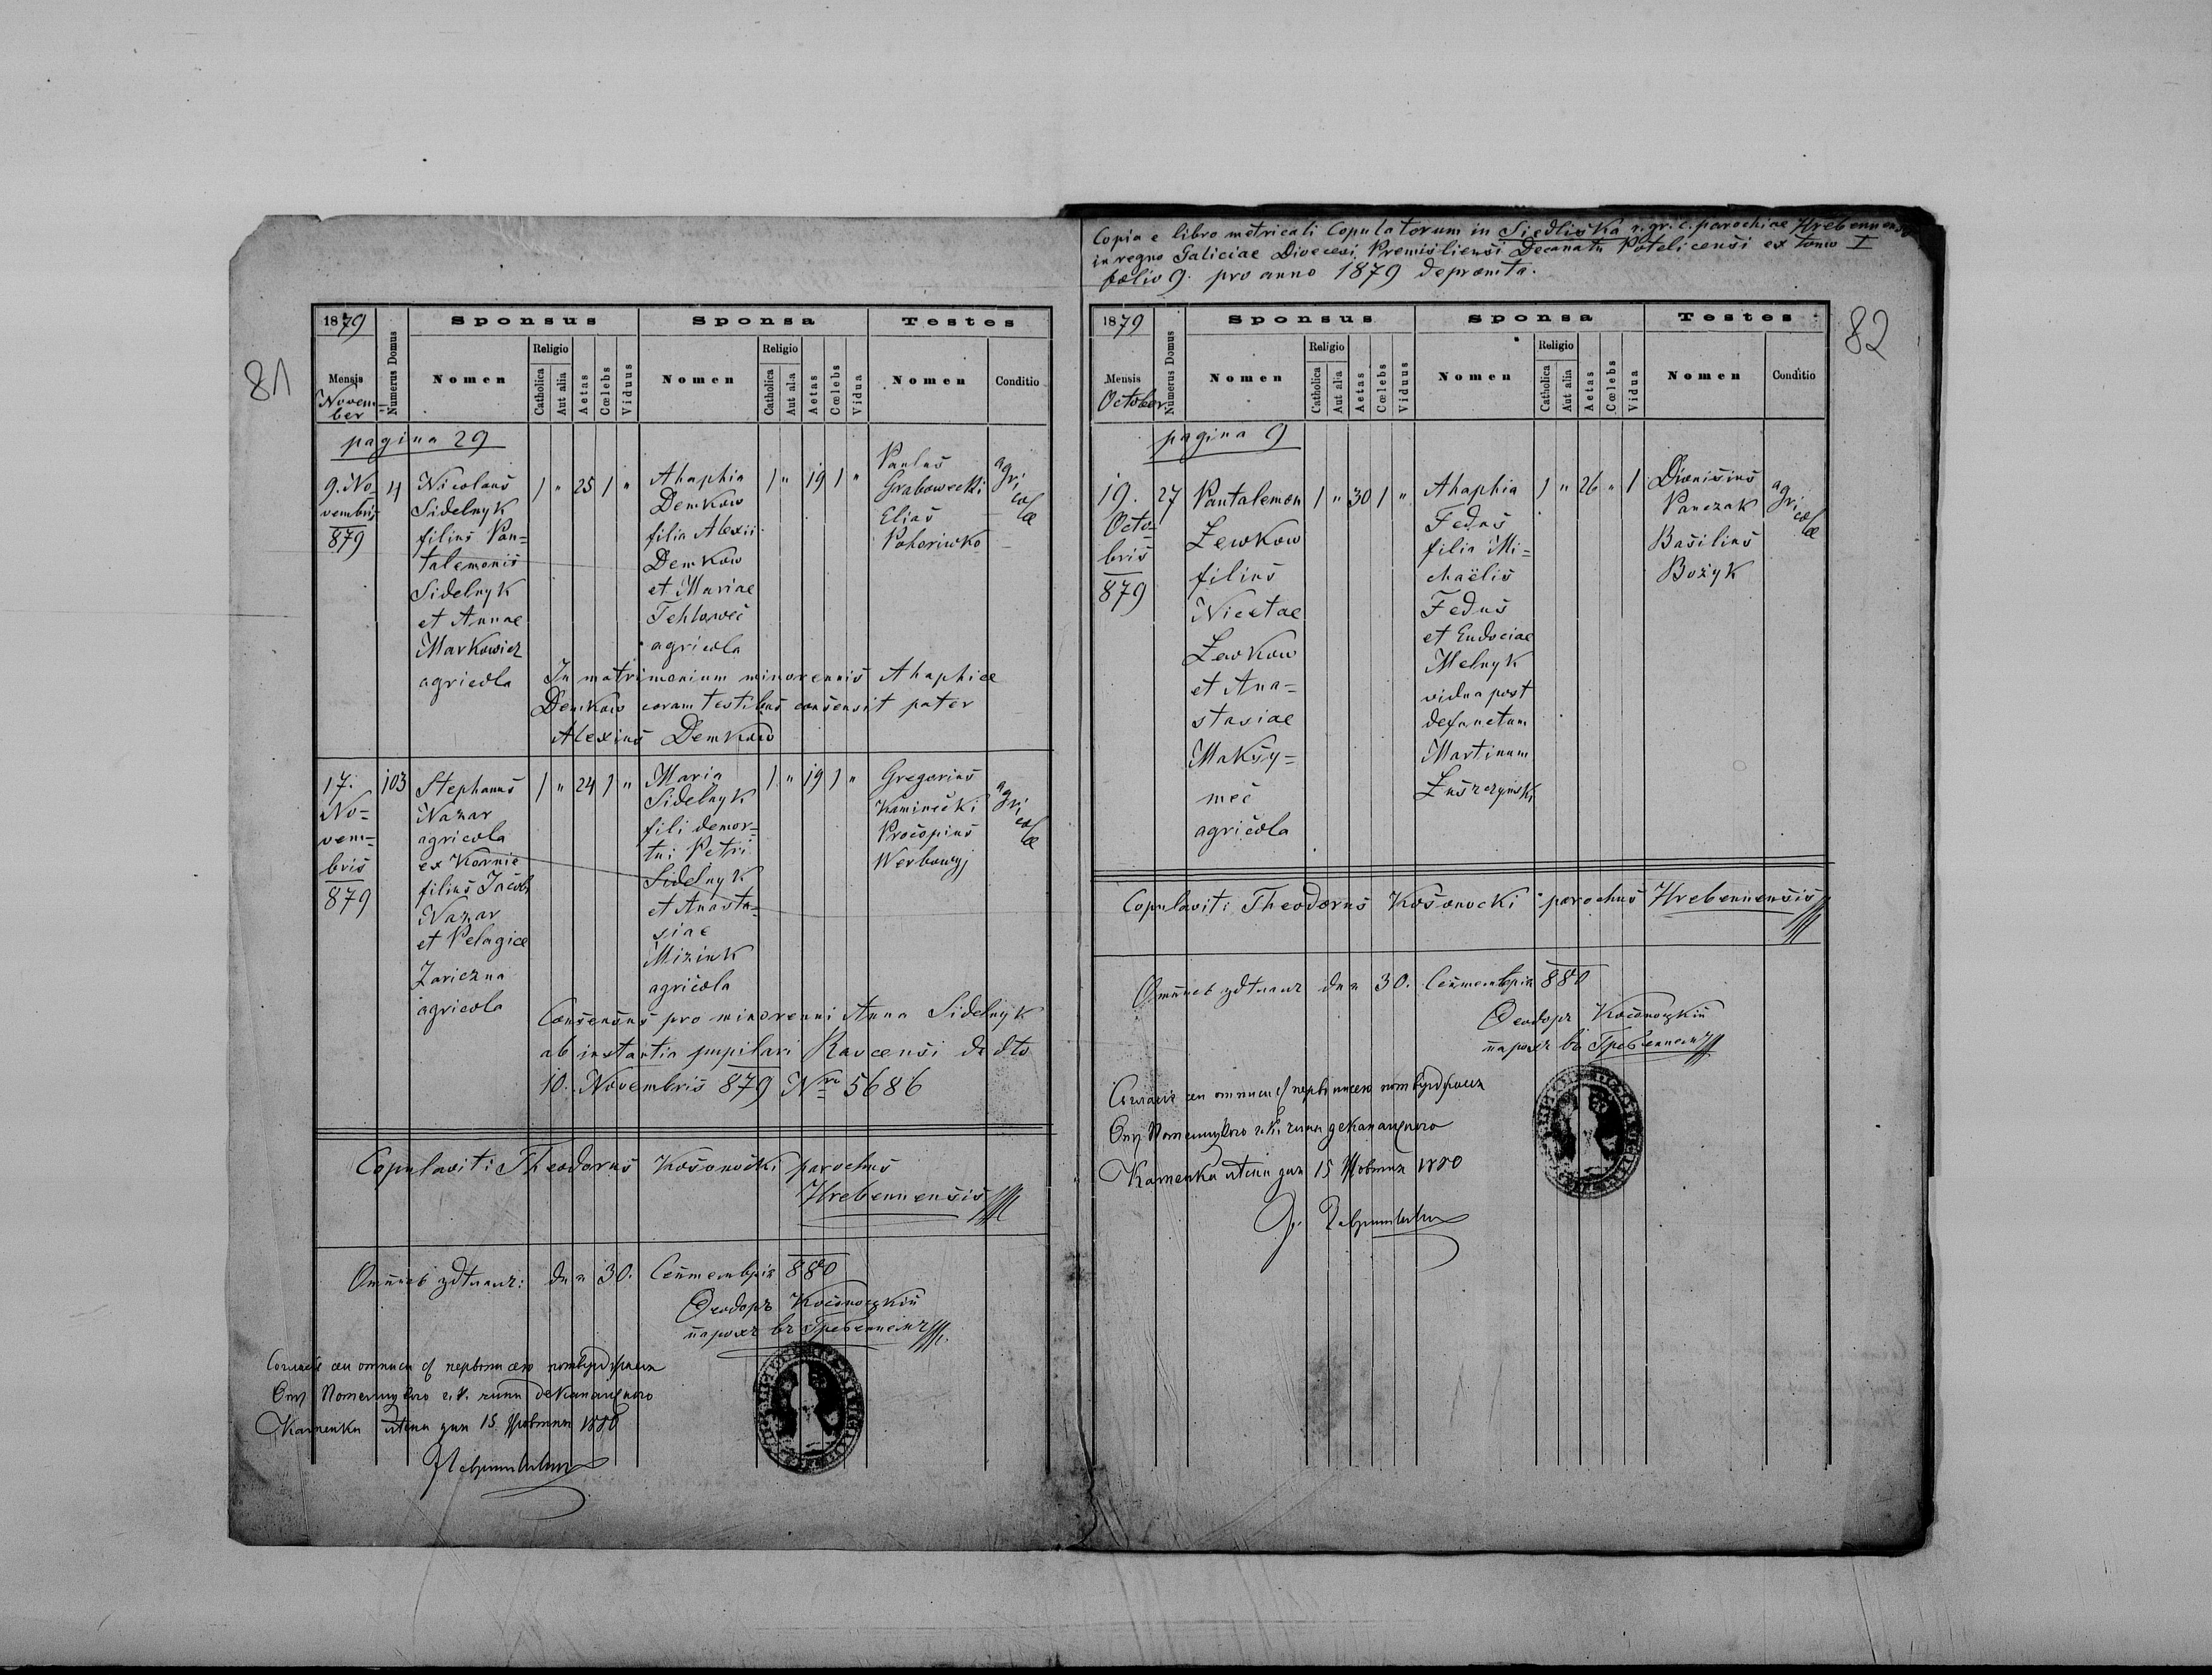 81
1879
Mensis
Novem-
ber
Numerus Domus
Sponsus
Nomen
Religio
Catholica
Aut alia
Aetas
Cœlebs
Viduus
Sponsa
Nomen
Religio
Catholica
Aut alia
Aetas
Cœlebs
Vidua
Testes
Nomen
Conditio
pagina 29
9. No-
vembris
879
4
Nicolaus
Sidelnyk
filius Pan=
talemonis
Sidelnyk
et Annae
Markowicz
agricola
1 " 25 1 "
Ahaphia
Demkow
filia Alexii
Demkow
et Mariae
Tehlowec
agricola
1 " 19 1 "
Paulus
Grabowecki
Elias
Pohoriwko
agri
co
læ
In matrimonium minorennis Ahaphiae
Demkow coram testibus consensit pater
Alexius Demkow
17.
No=
vem=
bris
879
103
Stephanus
Nazar
agricola
ex Kornie
filius Jacobi
Nazar
et Pelagiae
Zariczna
agricola
1 " 24 1 "
Maria
Sidelnyk
fili demor=
tui Petri
Sidelnyk
et Anasta=
siae
Miziuk
agricola
1 " 19 1 "
Gregorius
Kaminecki
Procopius
Werbowyj
agri
co
læ
Consensus pro minorenni Anna Sidelnyk
ab instantia pupilari Ravensi ddto
10. Novembris 879 Nro 5686
Copulavit: Theodorus Kosonocki parochus
Hrebennensis
дня 30. Септемврія 880
Ѳеодоръ Косоноцкій
парохъ въ Гребенномъ
15 1880
Copia e libro metricali Copulatorum in Siedliska r. gr. c. parochiae Hrebennensis
in regno Galiciae Dioecesi Premisliensi Decanatu Potelicensi ex tomo I
folio 9. pro anno 1879 depromta.
82
1879
Mensis
October
Numerus Domus
Sponsus
Nomen
Religio
Catholica
Aut alia
Aetas
Cœlebs
Viduus
Sponsa
Nomen
Religio
Catholica
Aut alia
Aetas
Cœlebs
Vidua
Testes
Nomen
Conditio
pagina 9
19.
Octo-
bris
879
27
Pantalemon
Lewkow
filius
Nicetae
Lewkow
et Ana=
stasiae
Maksy=
mec
agricola
1 " 30 1 "
Ahaphia
Fedus
filia Mi=
chaëlis
Fedus
et Eudociae
Melnyk
vidua post
defunctum
Martinum
Luszczynski
1 " 26 " 1
Dionisius
Panczak
Basilius
Bożyk
agri
co
læ
Copulavit: Theodorus Kosonocki parochus Hrebennensis
дня 30. Септемврія 880
Ѳеодоръ Косоноцкій
парохъ въ Гребенномъ
15 1880